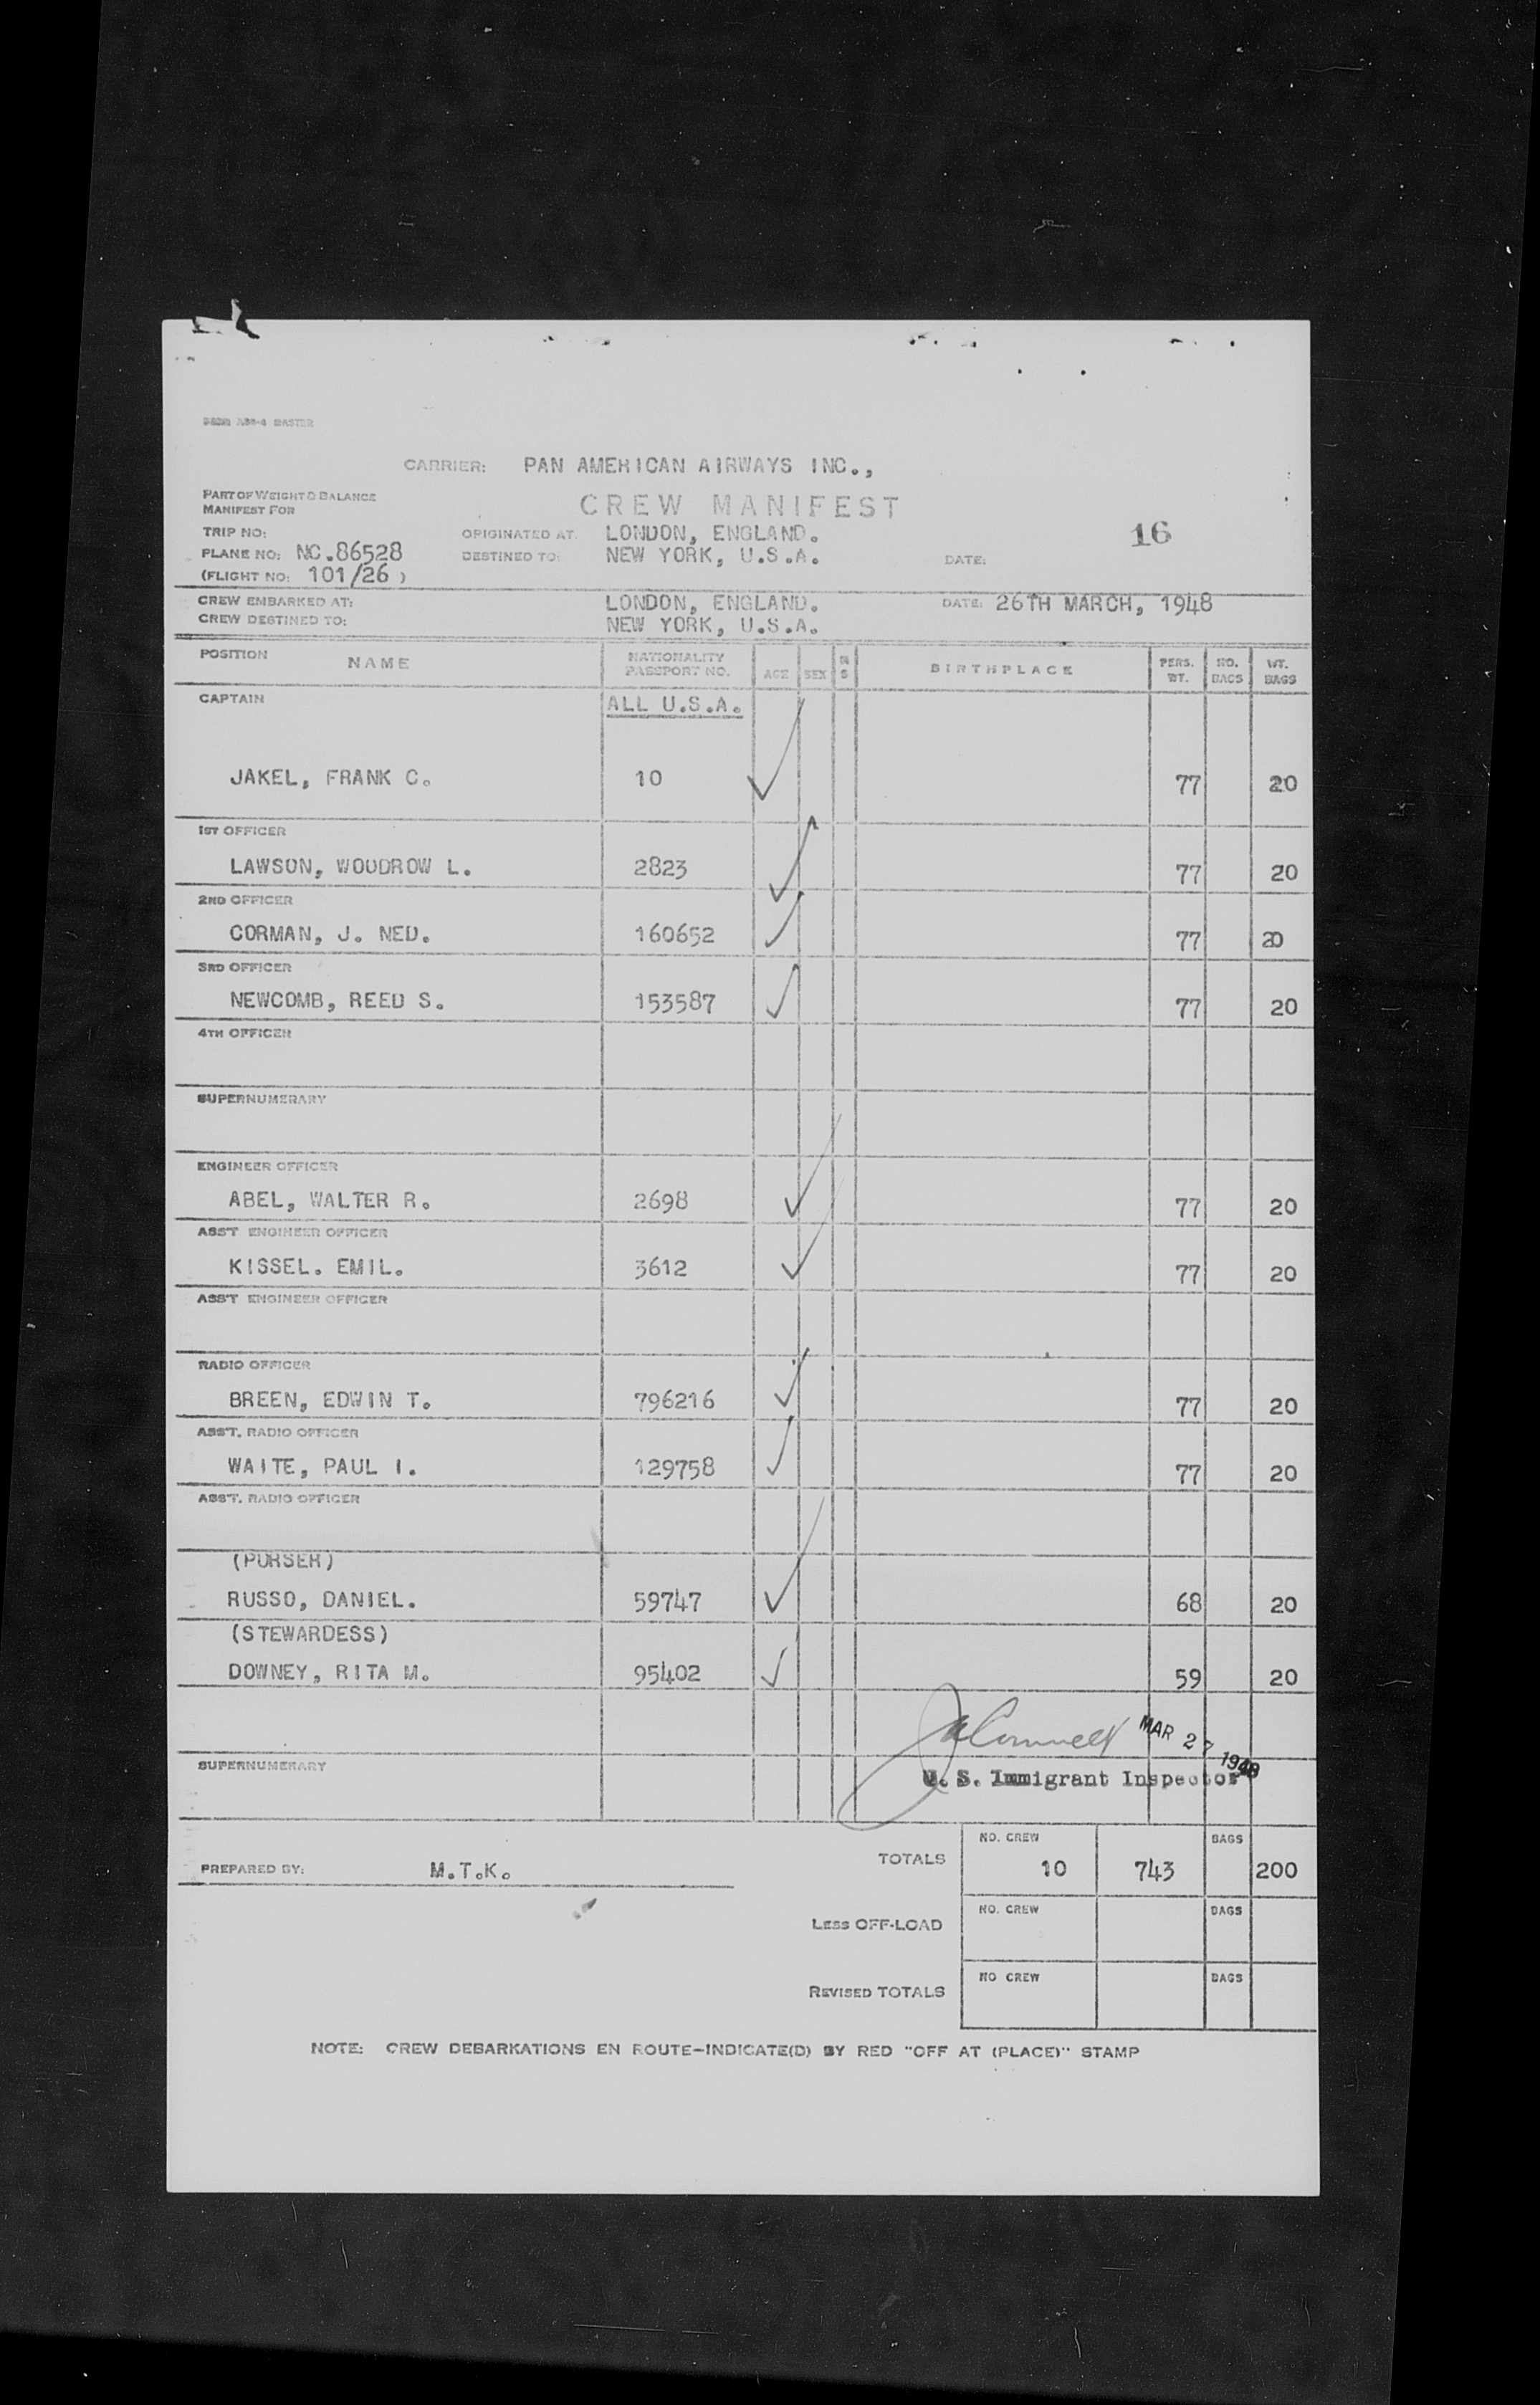 CARRIER: PAN AMERICAN AIRWAYS INC.,
PART OF WEIGHT & BALANCE
MANIFEST FOR
CREW MANIFEST
16
TRIP NO: ORIGINATED AT: LONDON, ENGLAND.
PLANE NO: NC.86528 DESTINED TO: NEW YORK, U.S.A. DATE:
(FLIGHT NO: 101/26 )
CREW EMBARKED AT: LONDON, ENGLAND. DATE: 26TH MARCH, 1948
CREW DESTINED TO: NEW YORK, U.S.A.
POSITION NAME NATIONALITY PASSPORT NO. AGE SEX M S BIRTHPLACE PERS. WT. NO. BAGS WT. BAGS
CAPTAIN ALL U.S.A.
JAKEL, FRANK C. 10 77 20
1ST OFFICER
LAWSON, WOODROW L. 2823 77 20
2ND OFFICER
CORMAN, J. NED. 160652 77 20
3RD OFFICER
NEWCOMB, REED S. 153587 77 20
4TH OFFICER
SUPERNUMERARY
ENGINEER OFFICER
ABEL, WALTER R. 2698 77 20
ASS'T ENGINEER OFFICER
KISSEL. EMIL. 3612 77 20
ASS'T ENGINEER OFFICER
RADIO OFFICER
BREEN, EDWIN T. 796216 77 20
ASS'T. RADIO OFFICER
WAITE, PAUL I. 129758 77 20
ASS'T. RADIO OFFICER
(PURSER)
RUSSO, DANIEL. 59747 68 20
(STEWARDESS)
DOWNEY, RITA M. 95402 59 20
MAR 27 1948
SUPERNUMERARY
U. S. Immigrant Inspector
NO. CREW BAGS
PREPARED BY: M.T.K. TOTALS 10 743 200
NO. CREW BAGS
LESS OFF-LOAD
NO CREW BAGS
REVISED TOTALS
NOTE: CREW DEBARKATIONS EN ROUTE-INDICATE(D) BY RED "OFF AT (PLACE)" STAMP